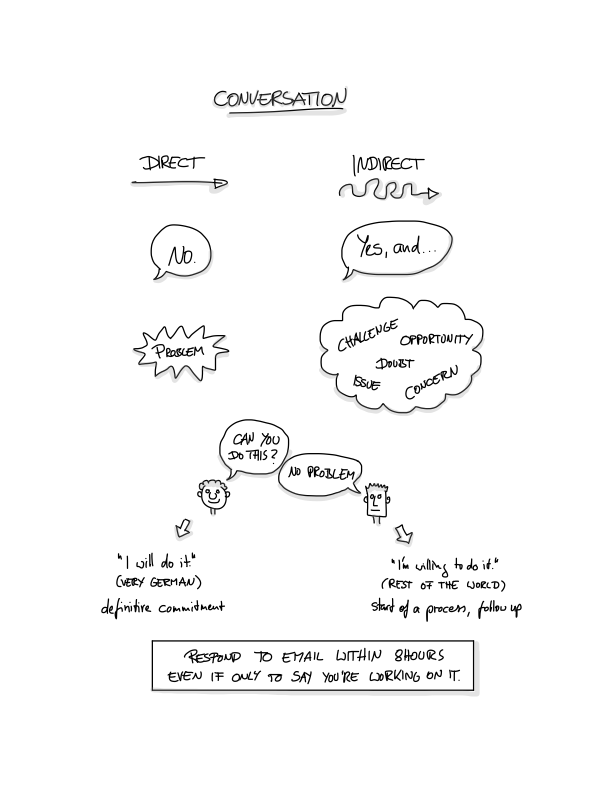 CONVERSATION
DIRECT
INDIRECT
No.
Yes, and...
PROBLEM
CHALLENGE
OPPORTUNITY
DOUBT
ISSUE
CONCERN
CAN YOU
DO THIS?
NO PROBLEM
"I will do it."
(VERY GERMAN)
definitive commitment
"I'm willing to do it."
(REST OF THE WORLD)
start of a process, follow up
RESPOND TO EMAIL WITHIN 8HOURS
EVEN IF ONLY TO SAY YOU'RE WORKING ON IT.